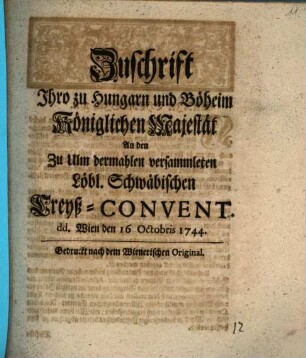 Zuschrift
Ihro zu Hungarn und Böheim
Königlichen Majestät
An den
Zu Ulm dermahlen versammleten
Löbl. Schwäbischen
Creyß=CONVENT.
dd. Wien den 16 Octobris 1744.
Gedruckt nach dem Wienerischen Original.
12